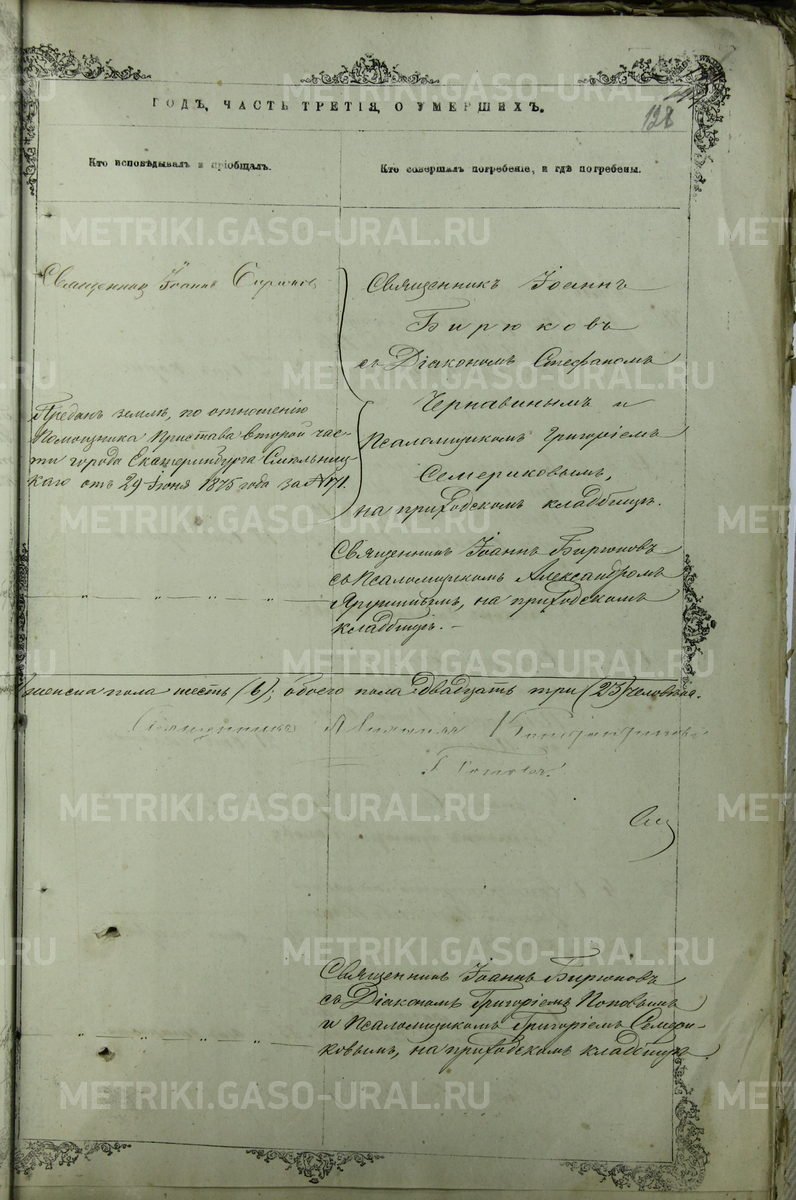 ГОДЪ, ЧАСТЬ ТРЕТІЯ, О УМЕРШИХЪ.
128
Кто исповѣдывалъ и пріобщалъ.
Кто совершалъ погребеніе, и гдѣ погребены.
Священникъ Іоаннъ
Священникъ Іоаннъ
Бирюковъ
съ Діакономъ Стефаномъ
Чернавинымъ и
Псаломщикомъ Григоріемъ
Семериковымъ,
на приходскомъ кладбищѣ.
Преданъ землѣ, по отношенію
Помощника Пристава второй час-
ти города Екатеринбурга
каго отъ 29 Іюня 1875 года за №
Священникъ Іоаннъ Бирюковъ
съ Псаломщикомъ Александромъ
на приходскомъ
кладбищѣ. –
„ „ „ „
женска пола шесть (6); обоего пола двадцать три (23) человѣка.
Священникъ
Священникъ Іоаннъ Бирюковъ
съ Діакономъ Григоріемъ Поповымъ
и Псаломщикомъ Григоріемъ Семери-
ковымъ, на приходскомъ кладбищѣ.
„ „ „ „
METRIKI.GASO-URAL.RU